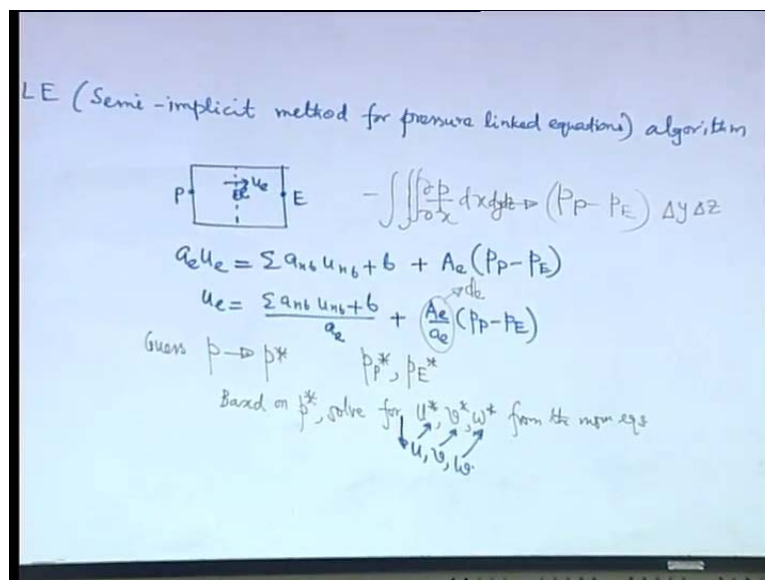 LE (Semi-implicit method for pressure linked equations) algorithm
P e u_e E - ∫∫∫ ∂p/∂x dx dy dz → (P_P - P_E) Δy Δz
a_e u_e = Σ a_nb u_nb + b + A_e (P_P - P_E)
u_e = (Σ a_nb u_nb + b)/a_e + A_e/a_e (P_P - P_E) → d_e
Guess p → p* p_P*, p_E*
Based on p*, solve for u*, v*, w* from the mom eqs
u, v, w.